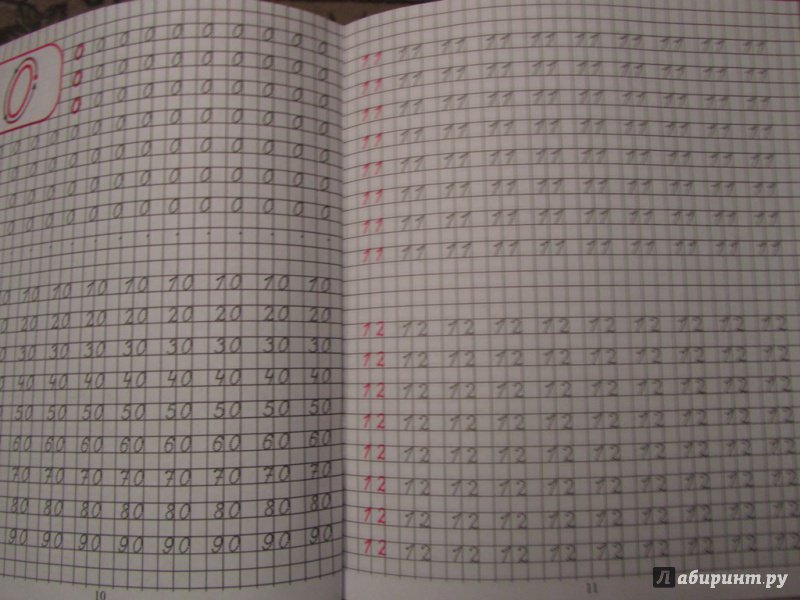 0
0 0 0 0 0 0 0 0 0 0
0 0 0 0 0 0 0 0 0 0
0 0 0 0 0 0 0 0 0 0
0 0 0 0 0 0 0 0 0 0 0 0 0
0 0 0 0 0 0 0 0 0 0 0 0 0
0 0 0 0 0 0 0 0 0 0 0 0 0
0 0 0 0 0 0 0 0 0 0 0 0 0
10 10 10 10 10 10 10 10
20 20 20 20 20 20 20 20
30 30 30 30 30 30 30 30
40 40 40 40 40 40 40 40
50 50 50 50 50 50 50 50
60 60 60 60 60 60 60 60
70 70 70 70 70 70 70 70
80 80 80 80 80 80 80 80
90 90 90 90 90 90 90 90
10
11 11 11 11 11 11 11 11 11 11
11 11 11 11 11 11 11 11 11 11
11 11 11 11 11 11 11 11 11 11
11 11 11 11 11 11 11 11 11 11
11 11 11 11 11 11 11 11 11 11
11 11 11 11 11 11 11 11 11 11
11 11 11 11 11 11 11 11 11 11
11 11 11 11 11 11 11 11 11 11
12 12 12 12 12 12 12 12 12 12
12 12 12 12 12 12 12 12 12 12
12 12 12 12 12 12 12 12 12 12
12 12 12 12 12 12 12 12 12 12
12 12 12 12 12 12 12 12 12 12
12 12 12 12 12 12 12 12 12 12
12 12 12 12 12 12 12 12 12 12
12 12 12 12 12 12 12 12 12 12
11
Лабиринт.ру